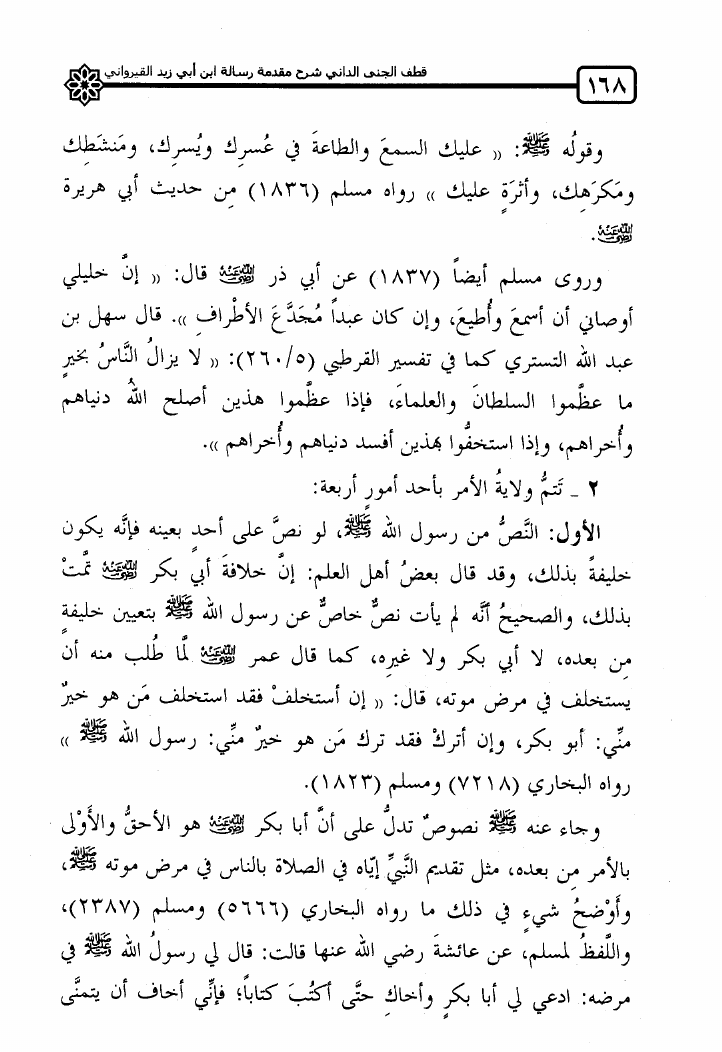 قطف الجنى الداني شرح مقدمة رسالة ابن أبي زيد القيرواني
١٦٨
وقولُه ﷺ: « عليك السمعَ والطاعةَ في عُسرِك ويُسرِك، ومَنشَطِك
ومَكرَهِك، وأثرَةٍ عليك » رواه مسلم (١٨٣٦) مِن حديث أبي هريرة
رضي الله عنه.
وروى مسلم أيضاً (١٨٣٧) عن أبي ذر رضي الله عنه قال: « إنَّ خليلي
أوصاني أن أسمعَ وأُطيعَ، وإن كان عبداً مُجَدَّعَ الأطْراف ». قال سهل بن
عبد الله التستري كما في تفسير القرطبي (٢٦٠/٥): « لا يزالُ النَّاسُ بخيرٍ
ما عظَّموا السلطانَ والعلماءَ، فإذا عظَّموا هذين أصلح اللهُ دنياهم
وأُخراهم، وإذا استخفُّوا بهذين أفسد دنياهم وأُخراهم ».
٢ ـ تَتمُّ ولايةُ الأمر بأحد أمورٍ أربعة:
الأول: النَّصُّ من رسول الله ﷺ، لو نصَّ على أحدٍ بعينه فإنَّه يكون
خليفةً بذلك، وقد قال بعضُ أهل العلم: إنَّ خلافةَ أبي بكر رضي الله عنه تمَّتْ
بذلك، والصحيحُ أنَّه لم يأت نصٌّ خاصٌّ عن رسول الله ﷺ بتعيين خليفةٍ
مِن بعده، لا أبي بكر ولا غيرِه، كما قال عمر رضي الله عنه لَمَّا طُلب منه أن
يستخلف في مرض موته، قال: « إن أستخلفْ فقد استخلف مَن هو خيرٌ
منِّي: أبو بكر، وإن أتركْ فقد ترك مَن هو خيرٌ منِّي: رسول الله ﷺ »
رواه البخاري (٧٢١٨) ومسلم (١٨٢٣).
وجاء عنه ﷺ نصوصٌ تدلُّ على أنَّ أبا بكر رضي الله عنه هو الأحقُّ والأَوْلى
بالأمر مِن بعده، مثل تقديم النَّبيِّ إيَّاه في الصلاة بالناس في مرض موته ﷺ،
وأَوْضحُ شيءٍ في ذلك ما رواه البخاري (٥٦٦٦) ومسلم (٢٣٨٧)،
واللَّفظُ لمسلم، عن عائشةَ رضي الله عنها قالت: قال لي رسولُ الله ﷺ في
مرضه: ادعي لي أبا بكرٍ وأخاكِ حتَّى أكتُبَ كتاباً؛ فإنِّي أخاف أن يتمنَّى